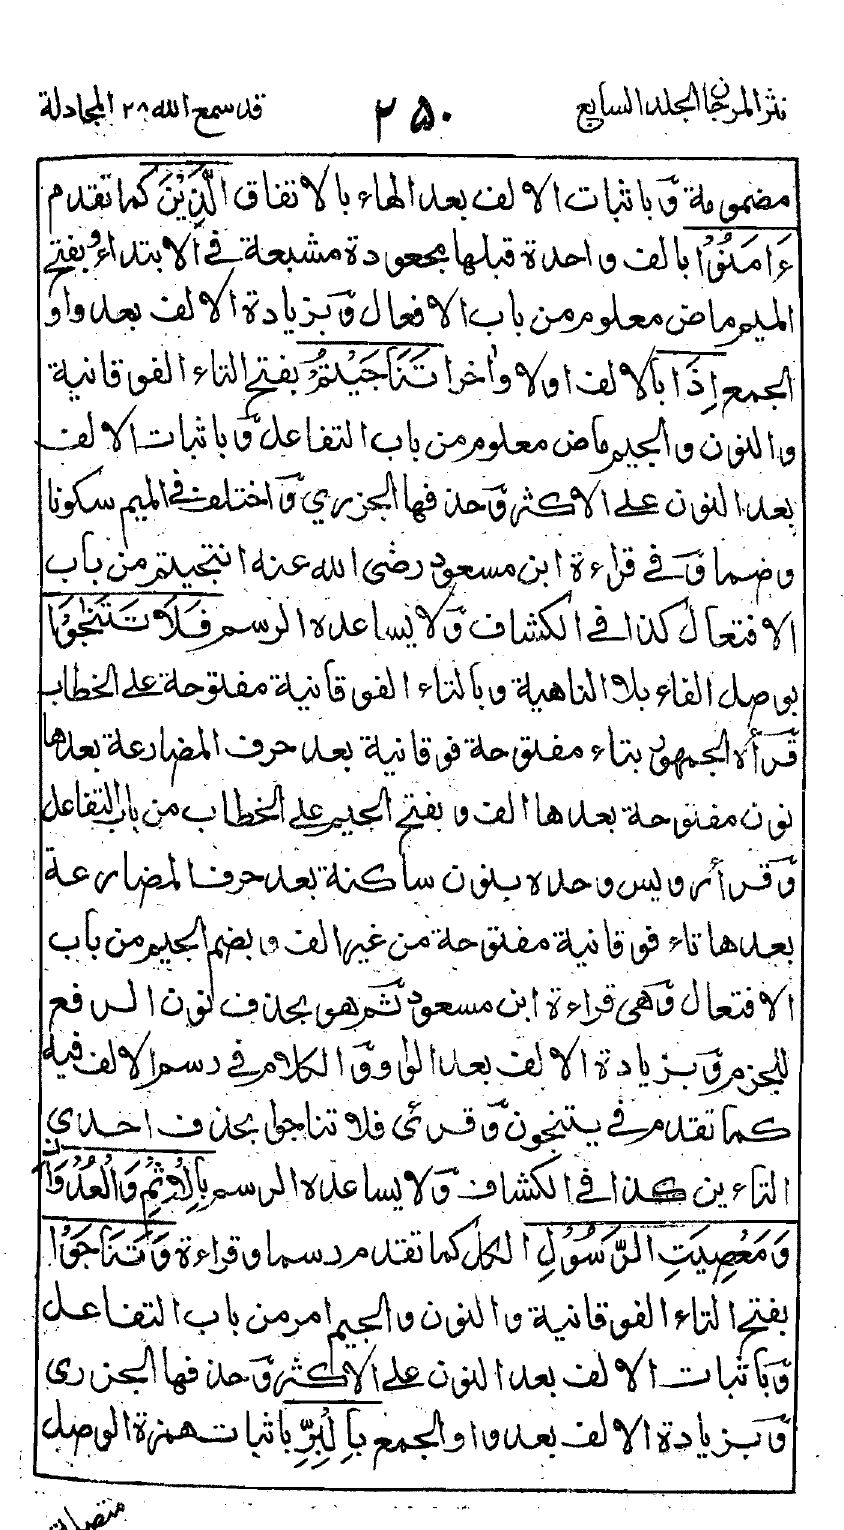 نثر المرجان الجلد السابع ۲۵۰ قد سمع الله ۲۸ المجادلة
مضمومة وَّباثبات الالف بعد الهاء بالاتفاق الَّذِيْنَ كما تقدم
ءَامَنُوْا بالف واحدة قبلها مجعودة مشبعة في الابتداء وبفتح
الميم ماض معلوم من باب الافعال وَّبزيادة الالف بعد واو
الجمع اِذَا بالالف اولا واٰخرا تَنَاجَيْتُمْ بفتح التاء الفوقانية
والنون والجيم ماض معلوم من باب التفاعل وَّباثبات الالف
بعد النون على الاكثر وَحذفها الجزري وَّاختلف في الميم سكونا
وضما وَّفي قراءة ابن مسعود رضي الله عنه انتجيتم من باب
الافتعال كذا في الكشاف وَّلا يساعده الرسم فَلَا تَتَنٰجَوْا
بوصل الفاء بلا الناهية وبالتاء الفوقانية مفتوحة على الخطاب
قَّرأه الجمهور بتاء مفتوحة فوقانية بعد حرف المضارعة بعدها
نون مفتوحة بعدها الف وبفتح الجيم على الخطاب من باب التفاعل
وَّقرأ رويس وحده بنون ساكنة بعد حرف المضارعة
بعدها تاء فوقانية مفتوحة من غير الف وبضم الجيم من باب
الافتعال وَّهي قراءة ابن مسعود ثَّم هو بحذف نون الرفع
للجزم وَّبزيادة الالف بعد الواو وَّالكلام في رسم الالف فيه
كما تقدم في يتنجون وَّقرئ فلا تناجوا بحذف احدى
التاءين كذا في الكشاف وَّلا يساعده الرسم بِالْاِثْمِ وَالْعُدْوَانِ
وَمَعْصِيَتِ الرَّسُوْلِ الكل كما تقدم رسما وقراءة وَتَنَاجَوْا
بفتح التاء الفوقانية والنون والجيم امر من باب التفاعل
وَّباثبات الالف بعد النون على الاكثر وَّحذفها الجزرى
وَّبزيادة الالف بعد واو الجمع بِالْبِرِّ باثبات همزة الوصل